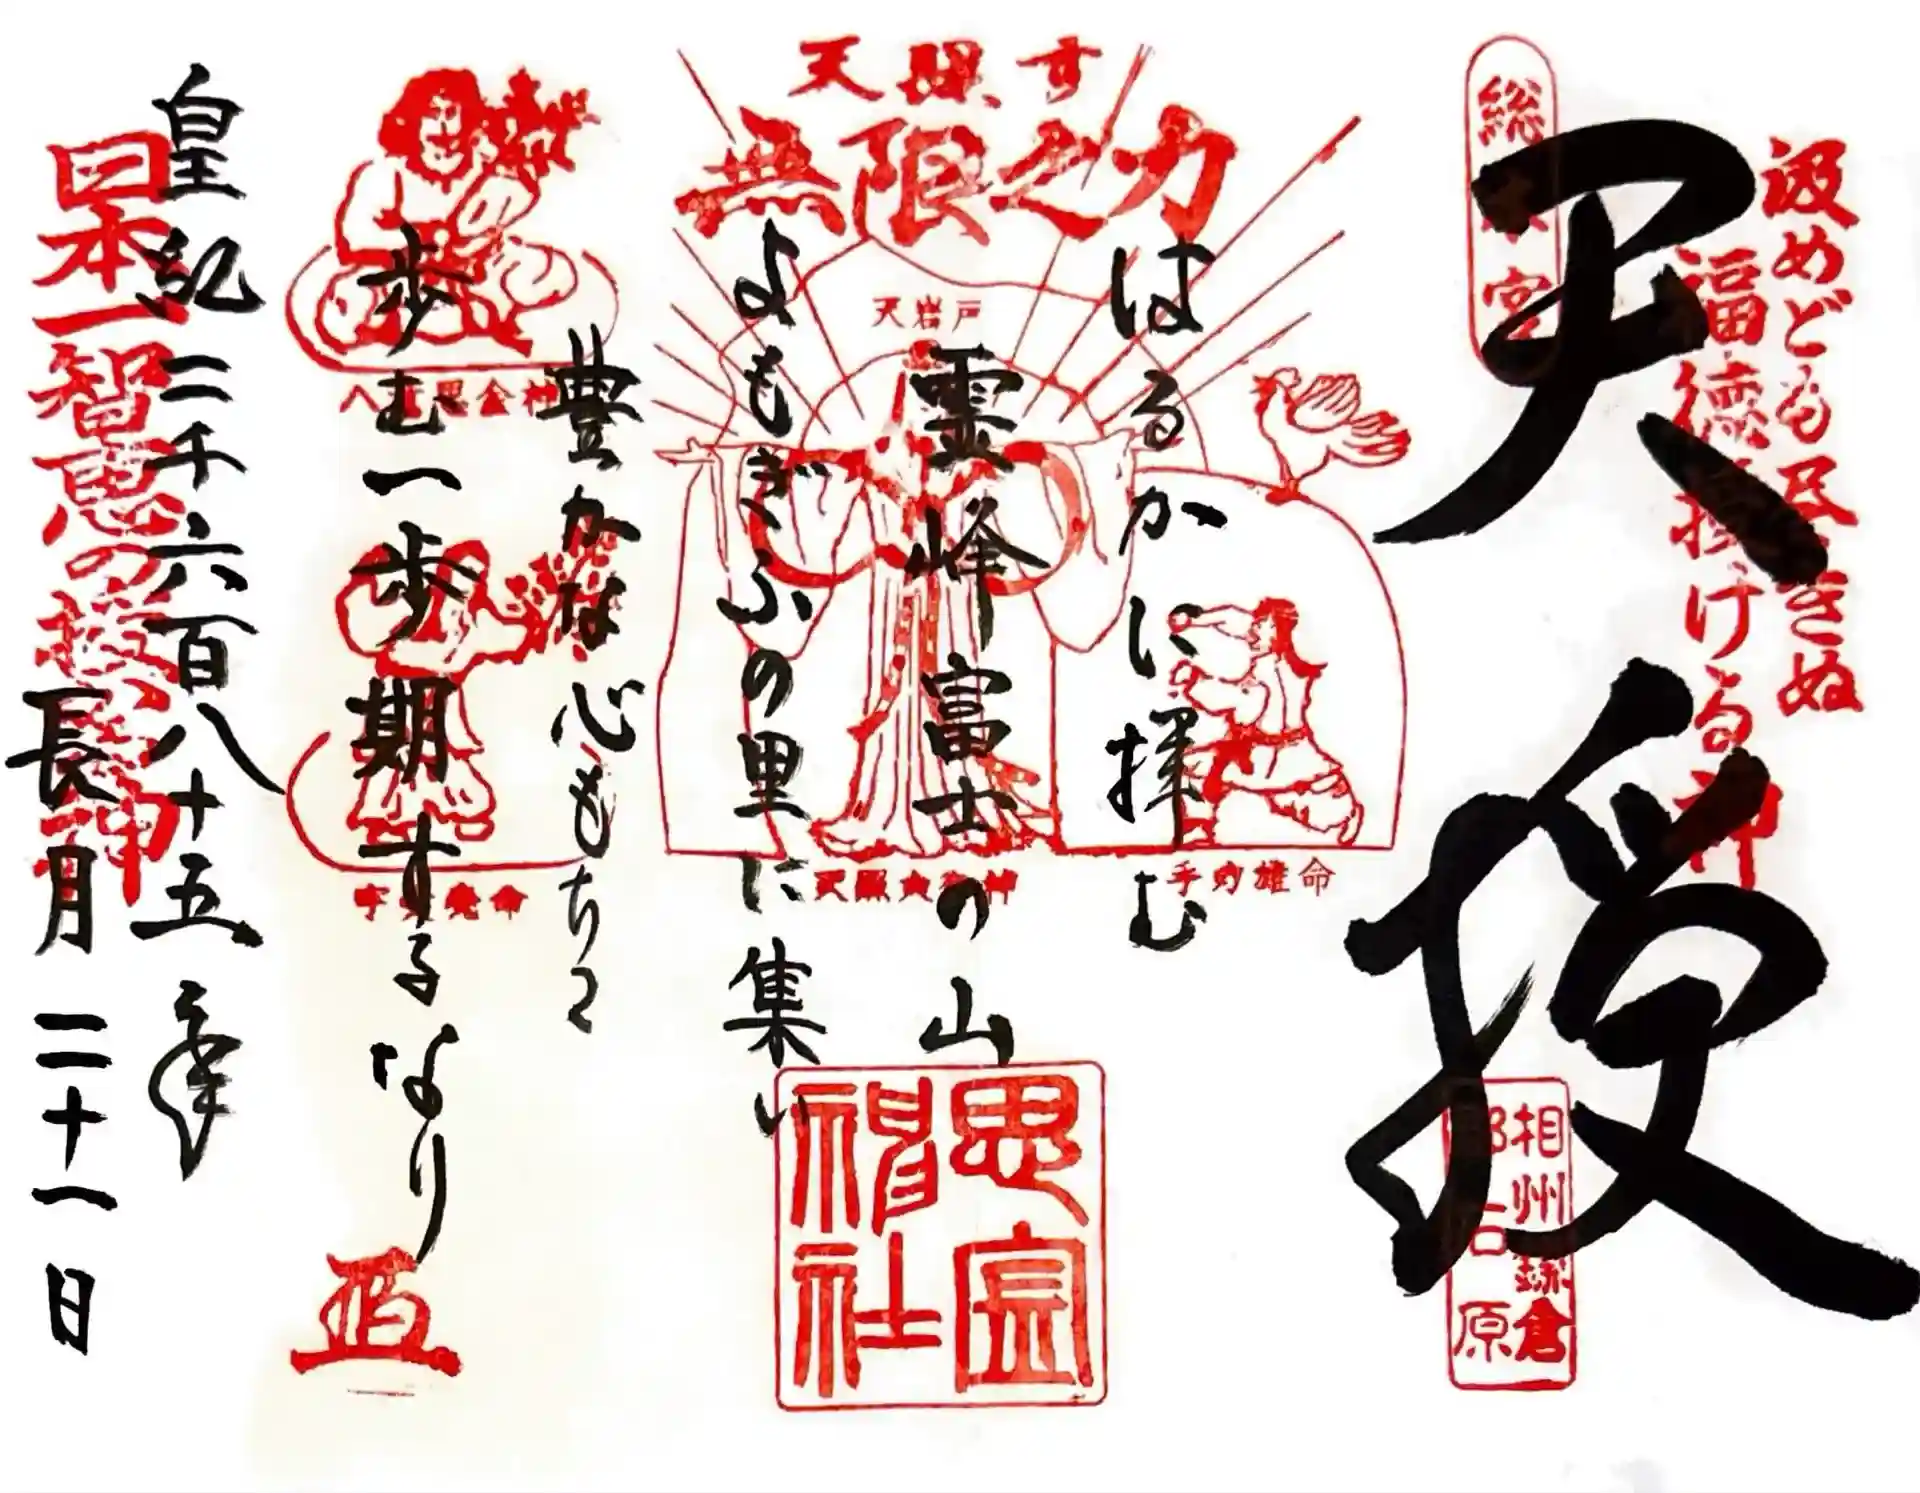 汲めども尽きぬ
福徳授ける神
総
宮
天授
相州鎌倉
原
天照す
無限之力
天岩戸
はるかに揮む
霊峰富士の山
よもぎふの里に集い
豊かな心もちて
歩む一歩期するなり
手力雄命
天照大御神
思金神社
八意思金神
皇紀二千六百八十五年
長月二十一日
日本一智恵の
神